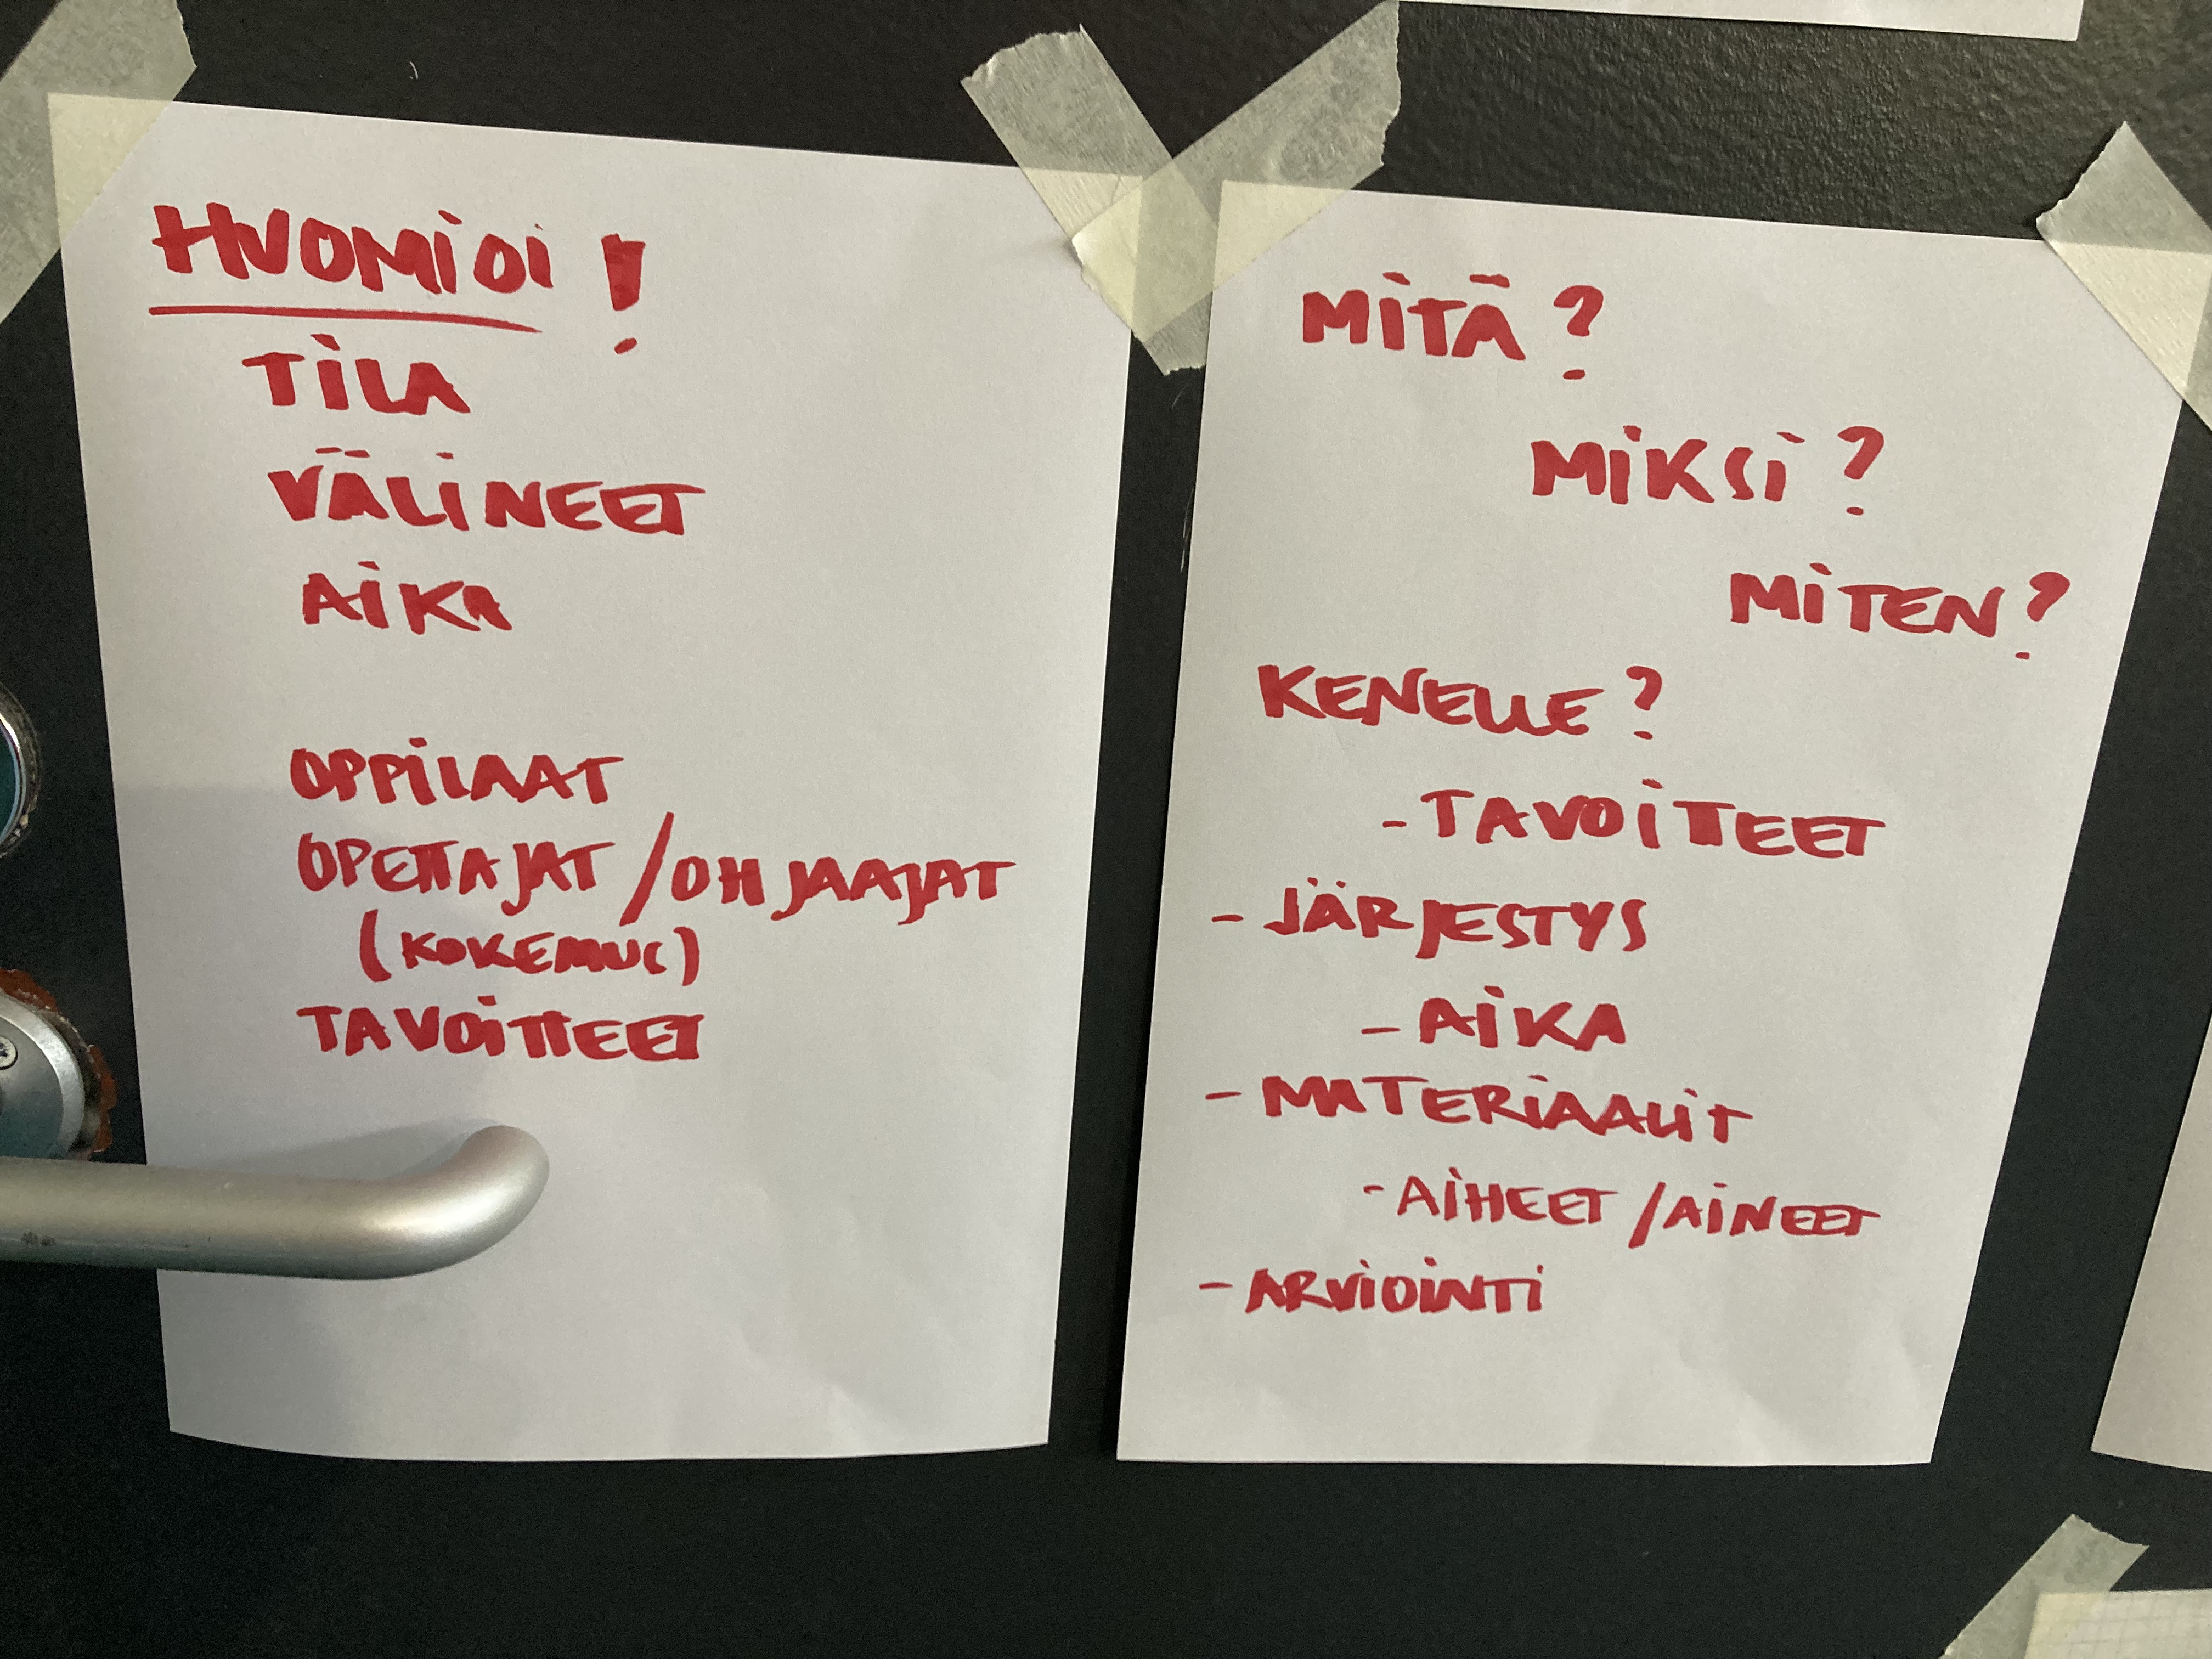 HUOMIOI !
TILA
VÄLINEET
AIKA
OPPILAAT
OPETTAJAT / OHJAAJAT
(KOKEMUS)
TAVOITTEET
MITÄ ?
MIKSI ?
MITEN ?
KENELLE ?
- TAVOITTEET
- JÄRJESTYS
- AIKA
- MATERIAALIT
- AIHEET / AINEET
- ARVIOINTI